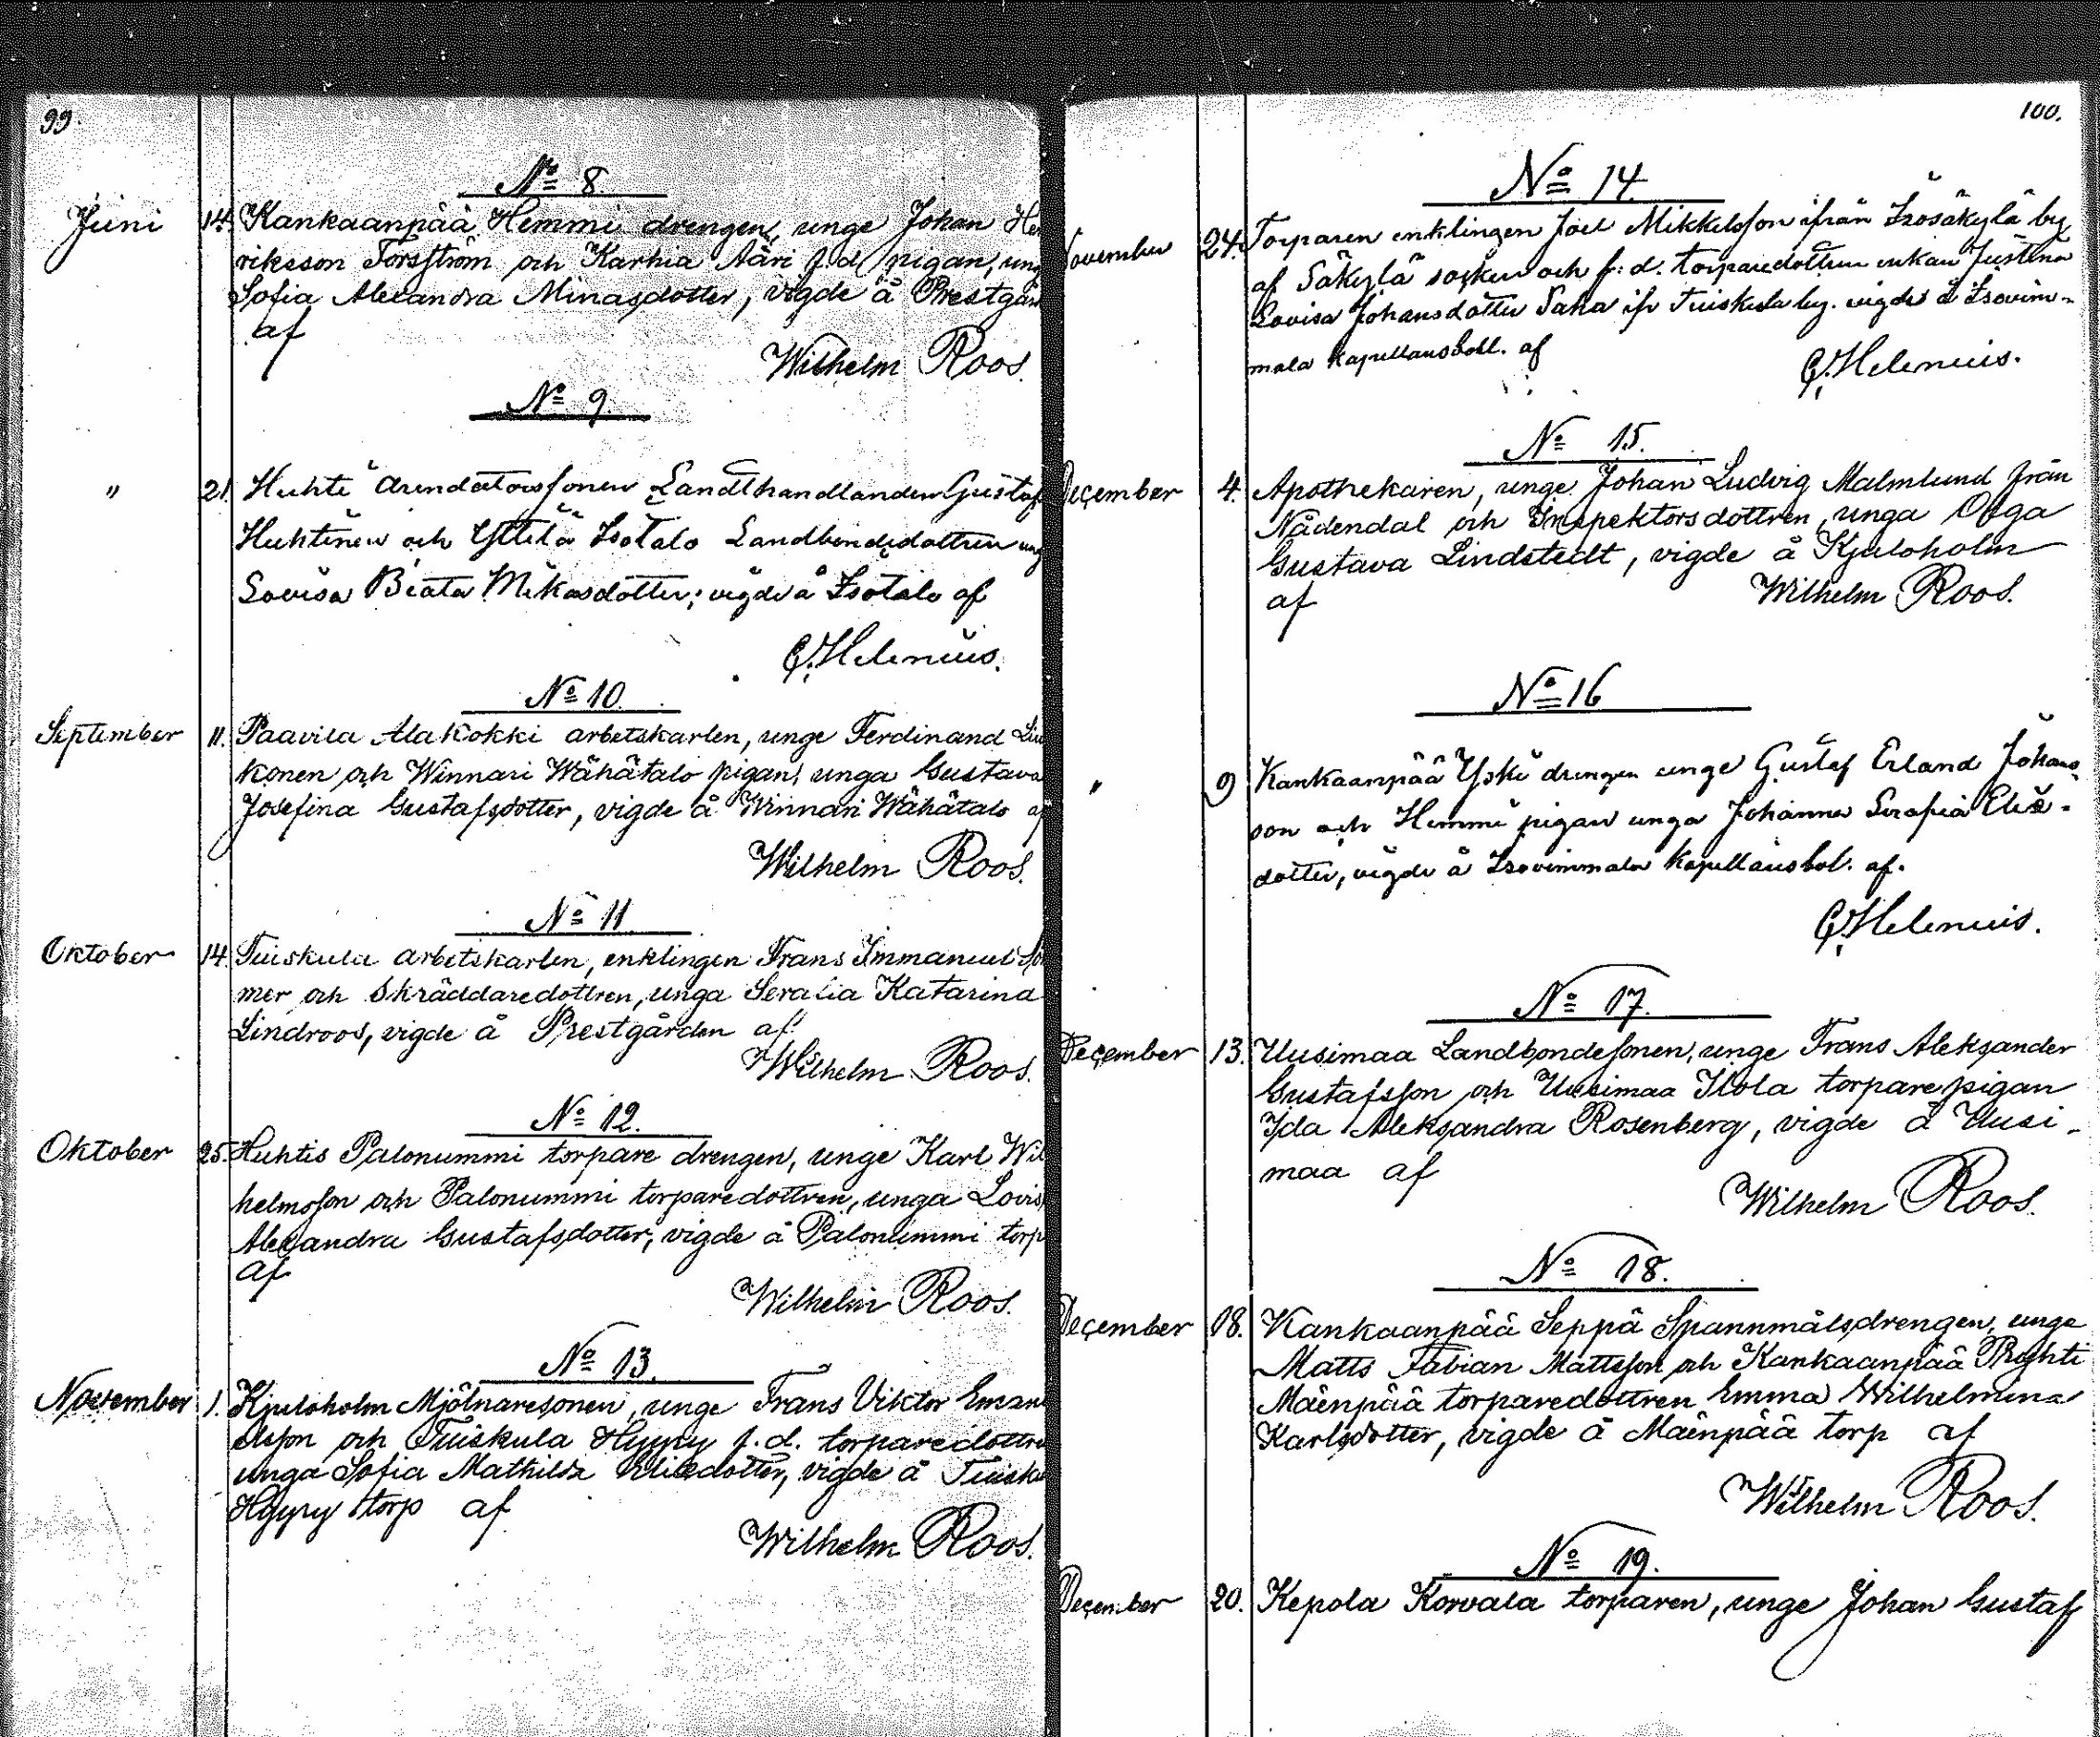 99.
No 8.
Juni 14. Kankaanpää Hemmi drengen, unge Johan He
riksson Forsström och Karhia Ääri f.d. pigan, ung
Sofia Alexandra Minasdotter, vigde å Prestgår
af
Wilhelm Roos.
No 9.
" 21. Huhti arendatorssonen Landthandlanden Gustaf
Huhtinen och Yttilä Isotalo Landbondedottren ung
Lovisa Beata Mikasdotter; vigde å Isotalo af
G. Helenius.
No 10.
September 11. Paavila Alakokki arbetskarlen, unge Ferdinand
konen och Winnari Wähätalo pigan, unga Gustava
Josefina Gustafsdotter, vigde å Winnari Wähätalo af
Wilhelm Roos.
No 11.
Oktober 14. Tuiskula arbetskarlen, enklingen Frans Immanuel
mer och Skräddaredottren, unga Seralia Katarina
Lindroos, vigde å Prestgården af
Wilhelm Roos.
No 12.
Oktober 25. Huhtis Palonummi torpare drengen, unge Karl Wil
helmsson och Palonummi torparedottren, unga Lovis
Alexandra Gustafsdotter, vigde å Palonummi torp
af
Wilhelm Roos.
No 13.
November 1. Kjuloholm Mjölnaresonen, unge Frans Viktor Eman
elsson och Tuiskula Hyyry f.d. torparedottre
unga Sofia Mathilda Eliedotter, vigde å Tuisku
Hyyry torp af
Wilhelm Roos.
100.
No 14.
November 24. Torparen enklingen Joel Mikkelsson ifrån Isosäkylä by
af Säkylä socken och f.d. torparedottren enkan Justina
Lovisa Johansdotter Saha ifr Tuiskula by. vigde å Isovim-
mala kapellansboll. af
G. Helenius.
No 15.
December 4. Apothekaren, unge Johan Ludvig Malmlund från
Nådendal och Inspektorsdottren, unga Olga
Gustava Lindstedt, vigde å Kjuloholm
af Wilhelm Roos.
No 16
" 9 Kankaanpää Yski drengen unge Gustaf Erland Johans-
son och Hemmi pigan unga Johanna Serafia Elis-
dotter, vigde å Isovimmala kapellansbol. af.
G. Helenius.
No 17.
December 13. Uusimaa Landbondesonen, unge Frans Aleksander
Gustafsson och Uusimaa Ilola torparepigan
Ida Aleksandra Rosenberg, vigde å Uusi-
maa af
Wilhelm Roos.
No 18.
December 18. Kankaanpää Seppä Spannmålsdrengen, unge
Matts Fabian Mattsson och Kankaanpää Pryhti
Mäenpää torparedottren Emma Wilhelmina
Karlsdotter, vigde å Mäenpää torp af
Wilhelm Roos.
No 19.
December 20. Kepola Korvala torparen, unge Johan Gustaf